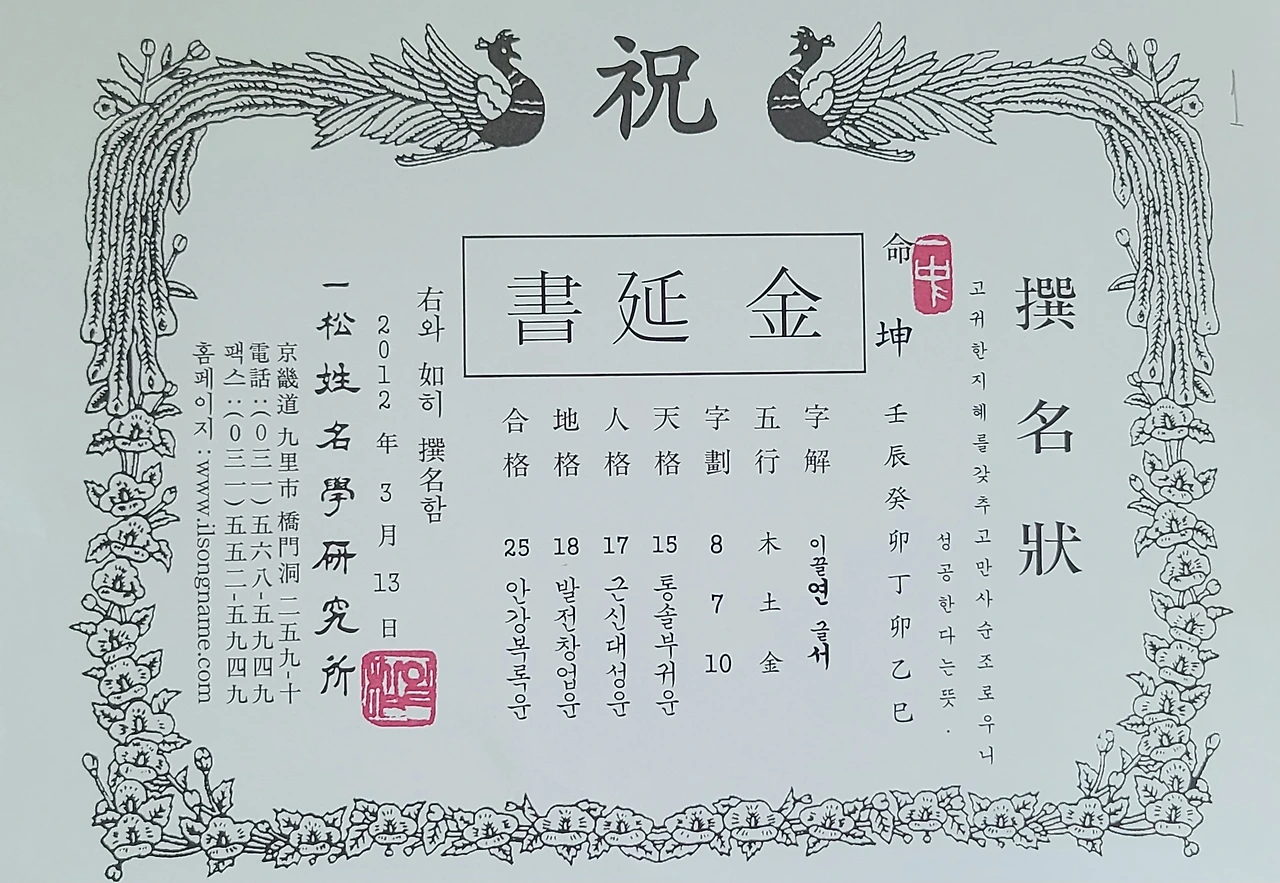 祝
撰名狀
고귀한 지혜를 갖추고 만사 순조로우니
성공한다는 뜻.
命 坤 壬辰 癸卯 丁卯 乙巳
金延書
字解 이끌연 글서
五行 木 土 金
字劃 8 7 10
天格 15 통솔부귀운
人格 17 근신대성운
地格 18 발전창업운
合格 25 안강복록운
右와 如히 撰名함
2012年 3月 13日
一松姓名學硏究所
京畿道 九里市 橋門洞 二五九-十
電話:(0三一)五六八-五九四九
팩스:(0三一)五五二-五九四九
홈페이지:www.ilsongname.com